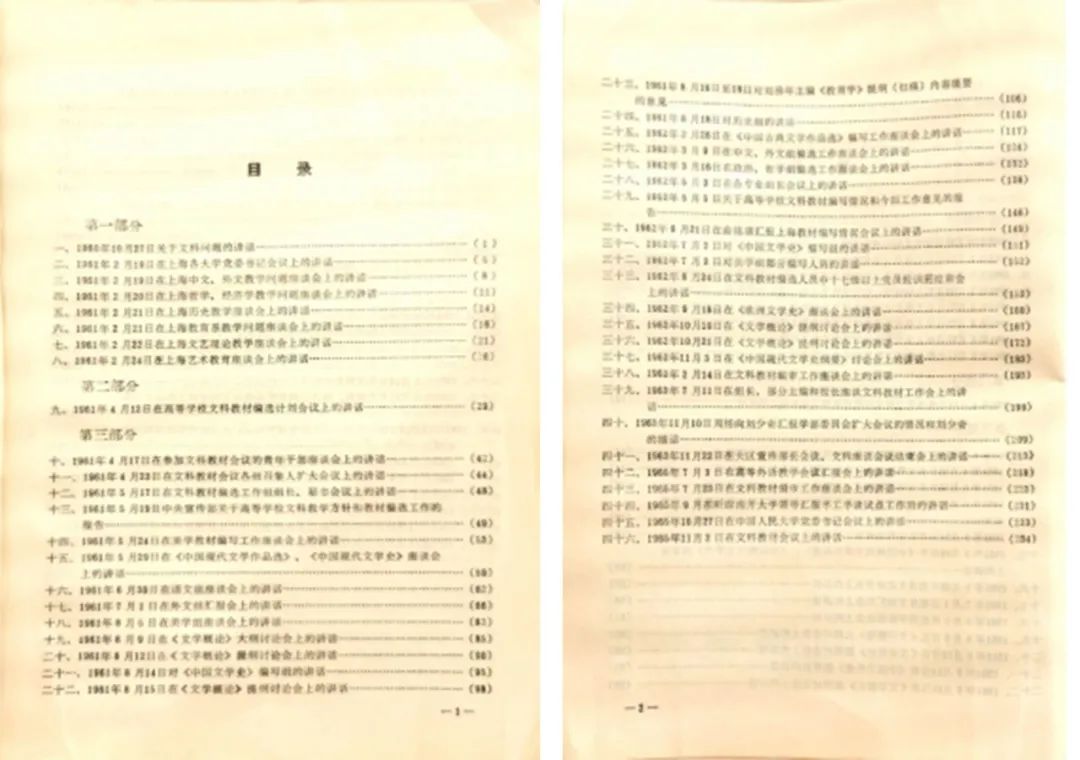 目 录
第一部分
一、1960年10月27日关于文科问题的讲话 (1)
二、1961年2月19日在上海各大学党委书记会议上的讲话 (5)
三、1961年2月19日在上海中文、外文教学问题座谈会上的讲话 (8)
四、1961年2月20日在上海哲学、经济学教学问题座谈会上的讲话 (11)
五、1961年2月21日在上海历史教学座谈会上的讲话 (14)
六、1961年2月21日在上海教育系教学问题座谈会上的讲话
七、1961年2月22日在上海文艺理论教学座谈会上的讲话 (21)
八、1961年2月24日在上海艺术教育座谈会上的讲话
第二部分
九、1961年4月12日在高等学校文科教材编选计划会议上的讲话 (29)
第三部分
十、1961年4月17日在参加文科教材会议的青年干部座谈会上的讲话
十一、1961年4月23日在文科教材会议各组召集人扩大会议上的讲话 (44)
十二、1961年5月17日在文科教材编选工作组组长、秘书会议上的讲话
十三、1961年5月19日中央宣传部关于高等学校文科教学方针和教材编选工作的
报告 (49)
十四、1961年5月24日在美学教材编写工作座谈会上的讲话 (53)
十五、1961年5月29日在《中国现代文学作品选》、《中国现代文学史》座谈会
上的讲话 (59)
十六、1961年6月30日在语文组座谈会上的讲话 (62)
十七、1961年7月1日在外文组汇报会上的讲话 (66)
十八、1961年8月5日在美学组座谈会上的讲话
十九、1961年8月9日在《文学概论》大纲讨论会上的讲话 (85)
二十、1961年8月12日在《文学概论》提纲讨论会上的讲话 (90)
二十一、1961年8月14日对《中国文学史》编写组的讲话 (95)
二十二、1961年8月15日在《文学概论》提纲讨论会上的讲话 (98)
— 1 —
二十三、1961年8月16日至18日对刘佛年主编《教育学》提纲（初稿）内容提要
的意见 (106)
二十四、1961年8月18日对历史组的讲话
二十五、1962年2月26日在《中国古典文学作品选》编写工作座谈会上的讲话 (117)
二十六、1962年3月9日在中文、外文组编选工作座谈会上的讲话
二十七、1962年3月16日在政治、哲学组编选工作座谈会上的讲话
二十八、1962年5月3日在各专业组长会议上的讲话
二十九、1962年5月5日关于高等学校文科教材编写情况和今后工作意见的报
告 (146)
三十、1962年6月21日在 汇报上海教材编写情况会议上的讲话 (149)
三十一、1962年7月3日对《中国文学史》编写组的讲话 (151)
三十二、1962年7月3日对美学组部分编写人员的讲话 (152)
三十三、1962年8月24日在文科教材编选人员中十七级以上党员
上的讲话
三十四、1962年9月18日在《欧洲文学史》座谈会上的讲话
三十五、1962年10月16日在《文学概论》提纲讨论会上的讲话 (167)
三十六、1962年10月21日在《文学概论》提纲讨论会上的讲话 (172)
三十七、1962年11月3日在《中国现代文学史纲要》讨论会上的讲话
三十八、1963年2月14日在文科教材编审工作座谈会上的讲话
三十九、1963年7月11日在组长、部分主编和报告座谈文科教材工作会上的讲
话 (199)
四十、1963年11月10日周扬向刘少奇汇报学部委员会扩大会议的情况和刘少奇
的插话 (209)
四十一、1963年11月22日在大区宣传部长会议、文科座谈会议结束会上的讲话
四十二、1965年7月3日在高等外语教学会议汇报会上的讲话
四十三、1965年7月23日在文科教材编审工作座谈会上的讲话
四十四、1965年9月 南开大学 工作时的讲话 (231)
四十五、1965年10月27日在中国人民大学党委书记会议上的讲话 (233)
四十六、1965年11月3日在文科教材会议上的讲话 (234)
— 2 —